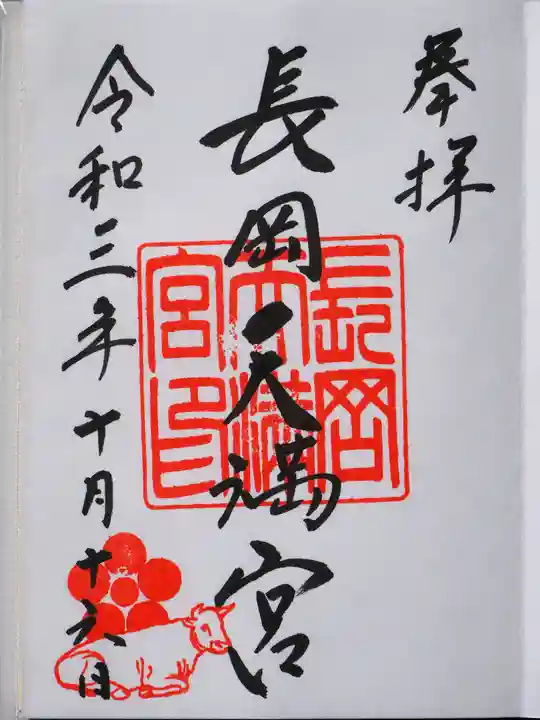 奉拝
長岡天満宮
令和三年十月十六日
長岡天満宮印